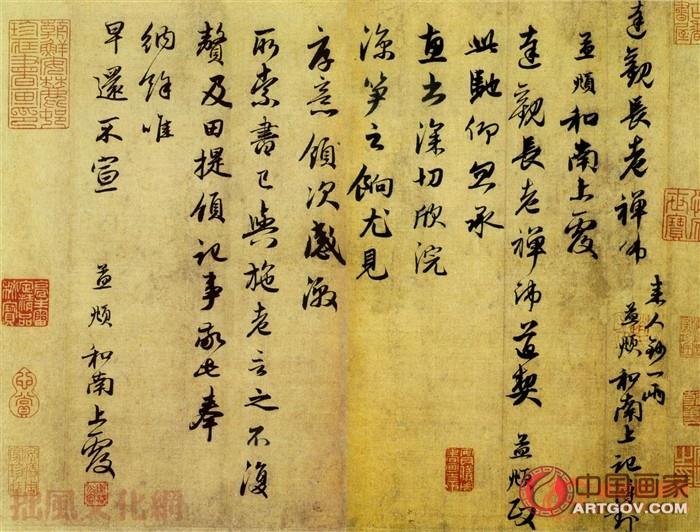 達觀長老禪師
來人鈔一兩
孟頫和南上記
孟頫和南上覆
達觀長老禪師道契 孟頫政
此馳仰忽承
惠書深切欣浣
深笋之餉尤見
厚意領次感激
所索書已與施老言之不復
贅及田提領記事敬此奉
納餘唯
早還不宣
孟頫和南上覆
心賞
拙風文化網
中国画家
ARTGOV.COM